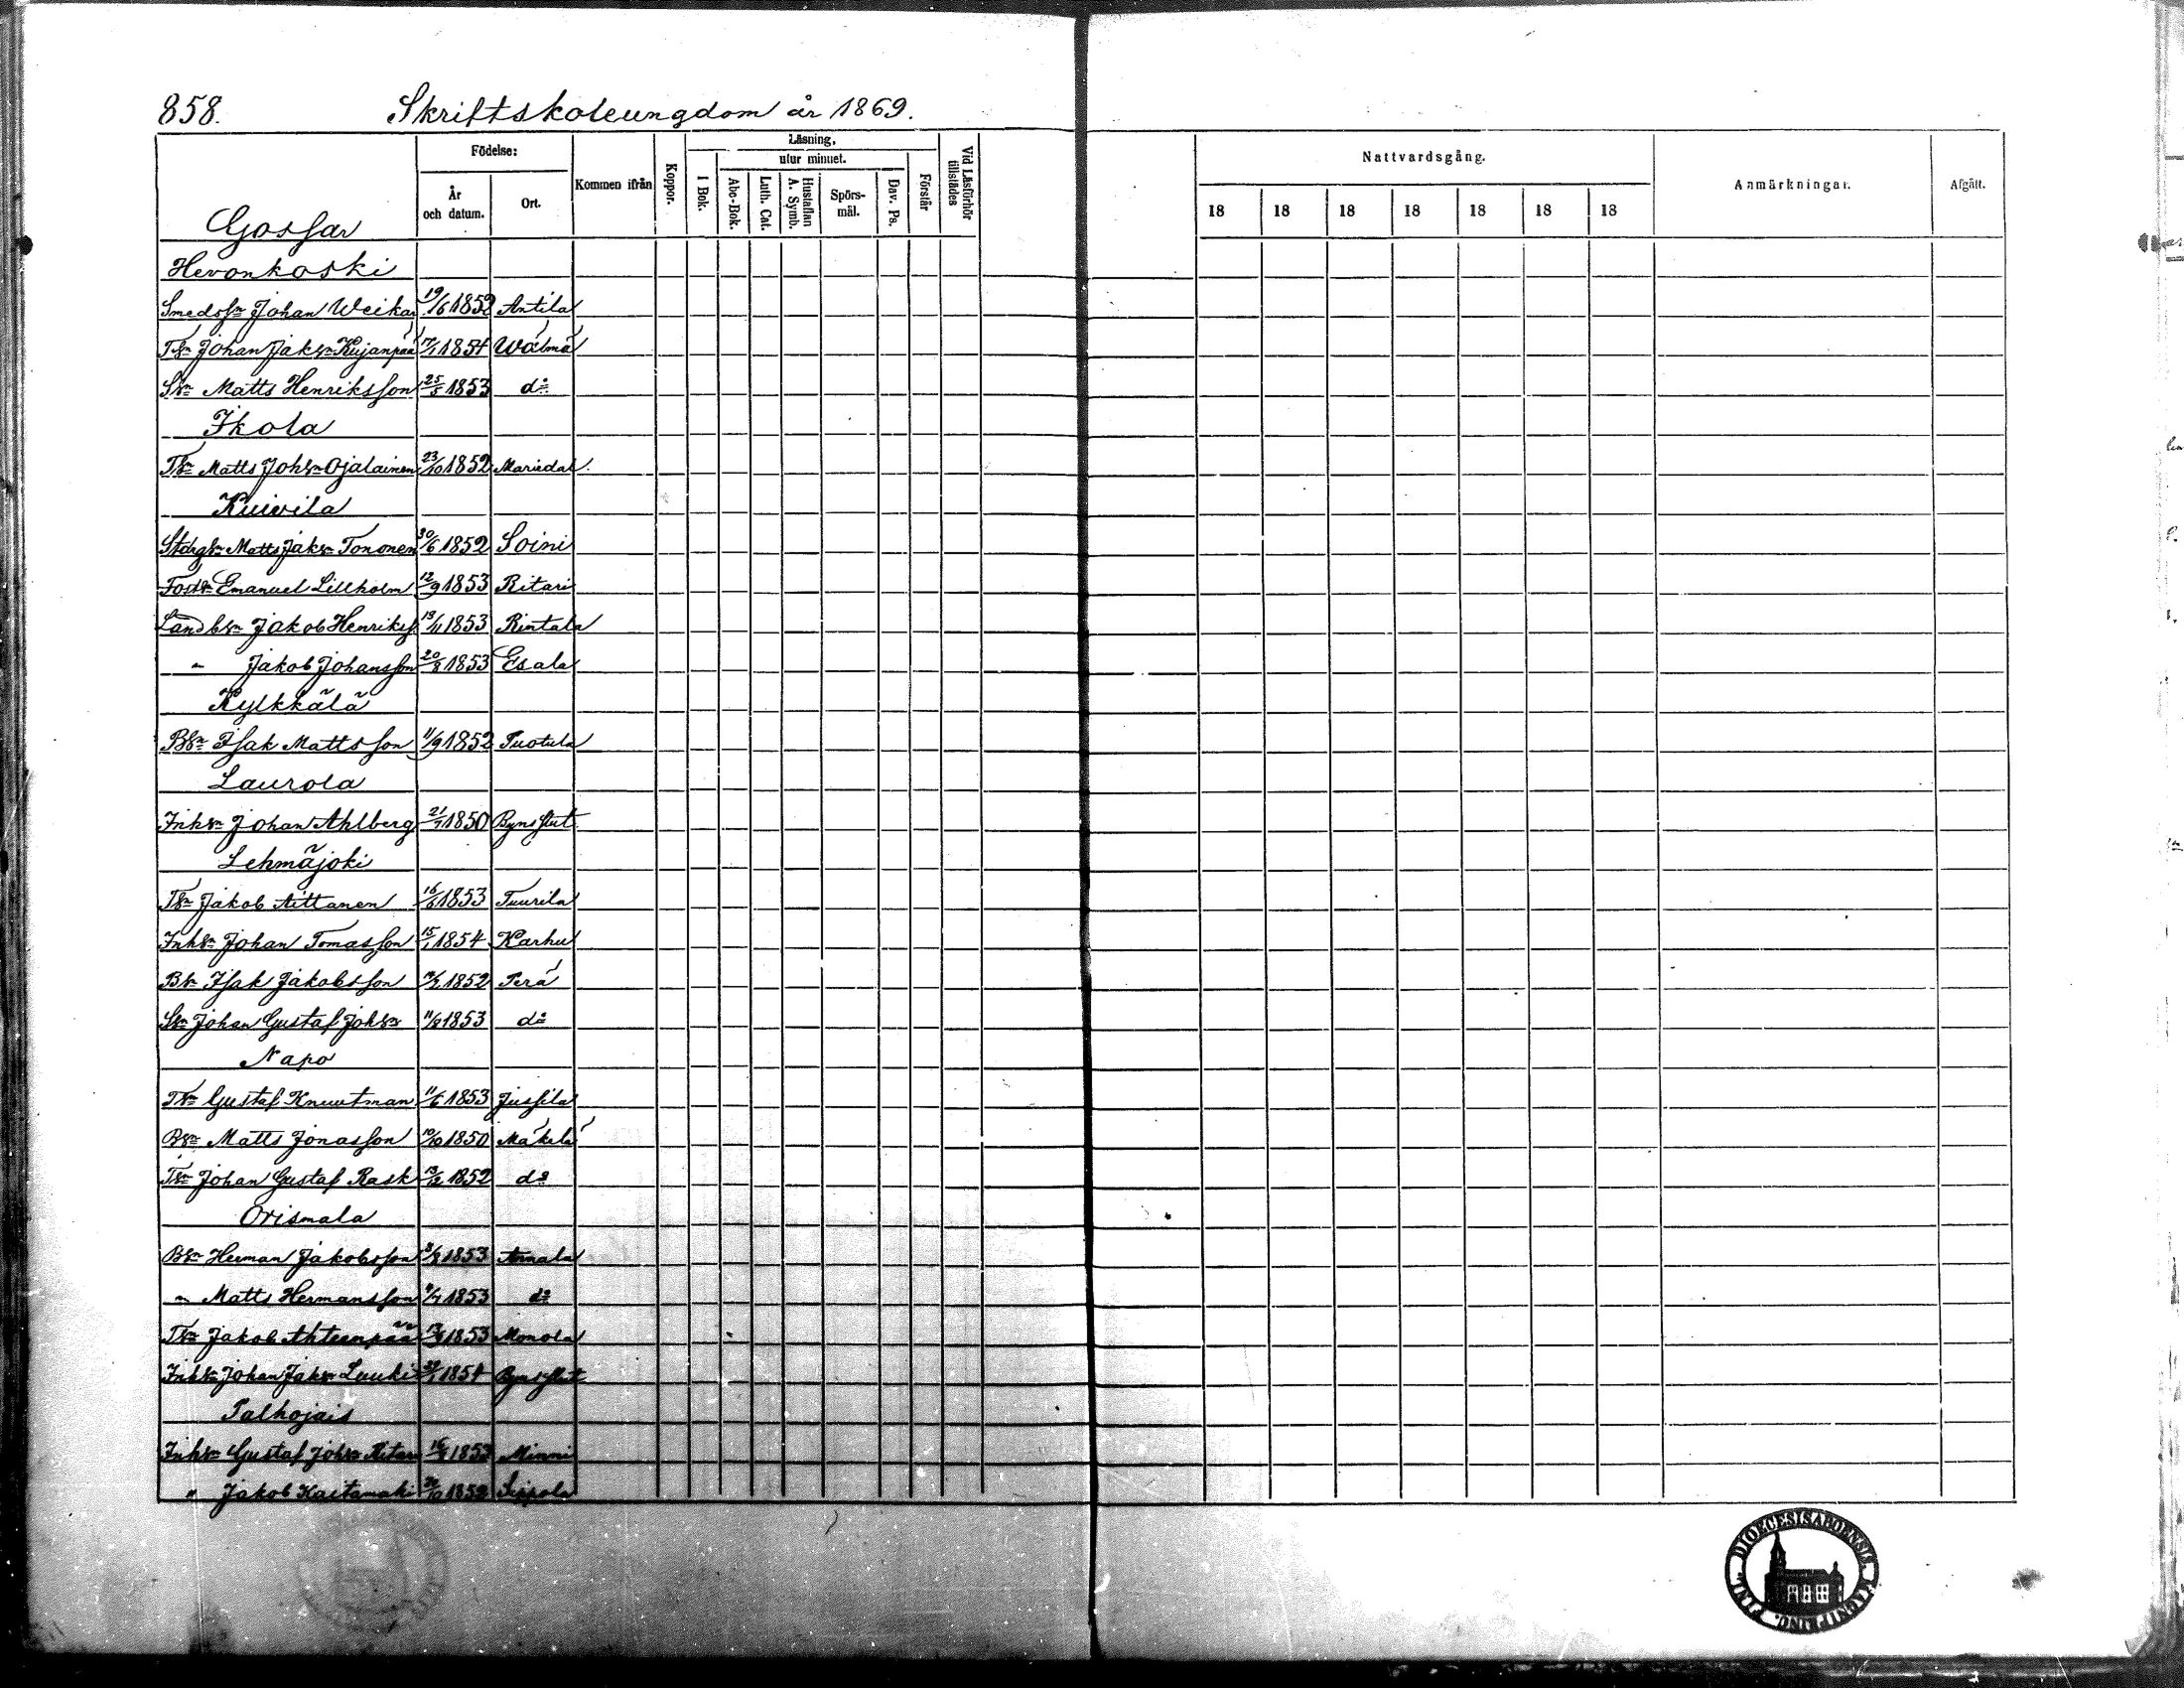 858. Skriftskoleungdom år 1869.
Gossar
Födelse:
År och datum.
Ort.
Kommen ifrån
Koppor.
Läsning,
utur minuet.
I Bok.
Abc-Bok.
Luth. Cat.
Hustaflan A. Symb.
Spörs-mål.
Dav. Ps.
Förstår
Vid Läsförhör tillstädes
Nattvardsgång.
18 18 18 18 18 18 18
Anmärkningar.
Afgått.
Hevonkoski
Smedsn Johan Weikar 19/6 1852 Antila
Tsn Johan Jaksn Kujanpää 17/1 1854 Wälmä
Ssn Matts Henriksson 25/5 1853 do
Ikola
Tsn Matts Johsn Ojalainen 23/10 1852 Mariedal.
Kuivila
Stdrgsn Matts Jaksn Tononen 30/6 1852 Soini
Fostsn Emanuel Lillholm 12/9 1853 Ritari
Landbsn Jakob Henrikss. 19/11 1853 Rintala
" Jakob Johansson 20/8 1853 Esala
Kylkkälä
Bsn Isak Mattsson 11/9 1852 Tuotula
Laurola
Inhsn Johan Ahlberg 21/7 1850 Bynsslut
Lehmäjoki
Tsn Jakob Aittanen 16/6 1853 Tuurila
Inhsn Johan Tomasson 15/1 1854 Karhu
Bsn Isak Jakobsson 1852 Perä
Ssn Johan Gustaf Johsn 11/8 1853 do
Napo
Tsn Gustaf Knuutman 11/6 1853 Jussila
Bsn Matts Jonasson 10/10 1850 Mäkelä
Tsn Johan Gustaf Rask 13/12 1852 do
Orismala
Bsn Herman Jakobsson 8/8 1853 Annala
" Matts Hermansson 1853 do
Tsn Jakob Ahteenpää 1853 Monola
Inhsn Johan Jaksn Luuki 1854 Bynsslut
Palhojais
Inhsn Gustaf Johsn 1853 Minni
" Jakob Kaitamäki 1852 Sippola
DIOECESIS ABOENSIS